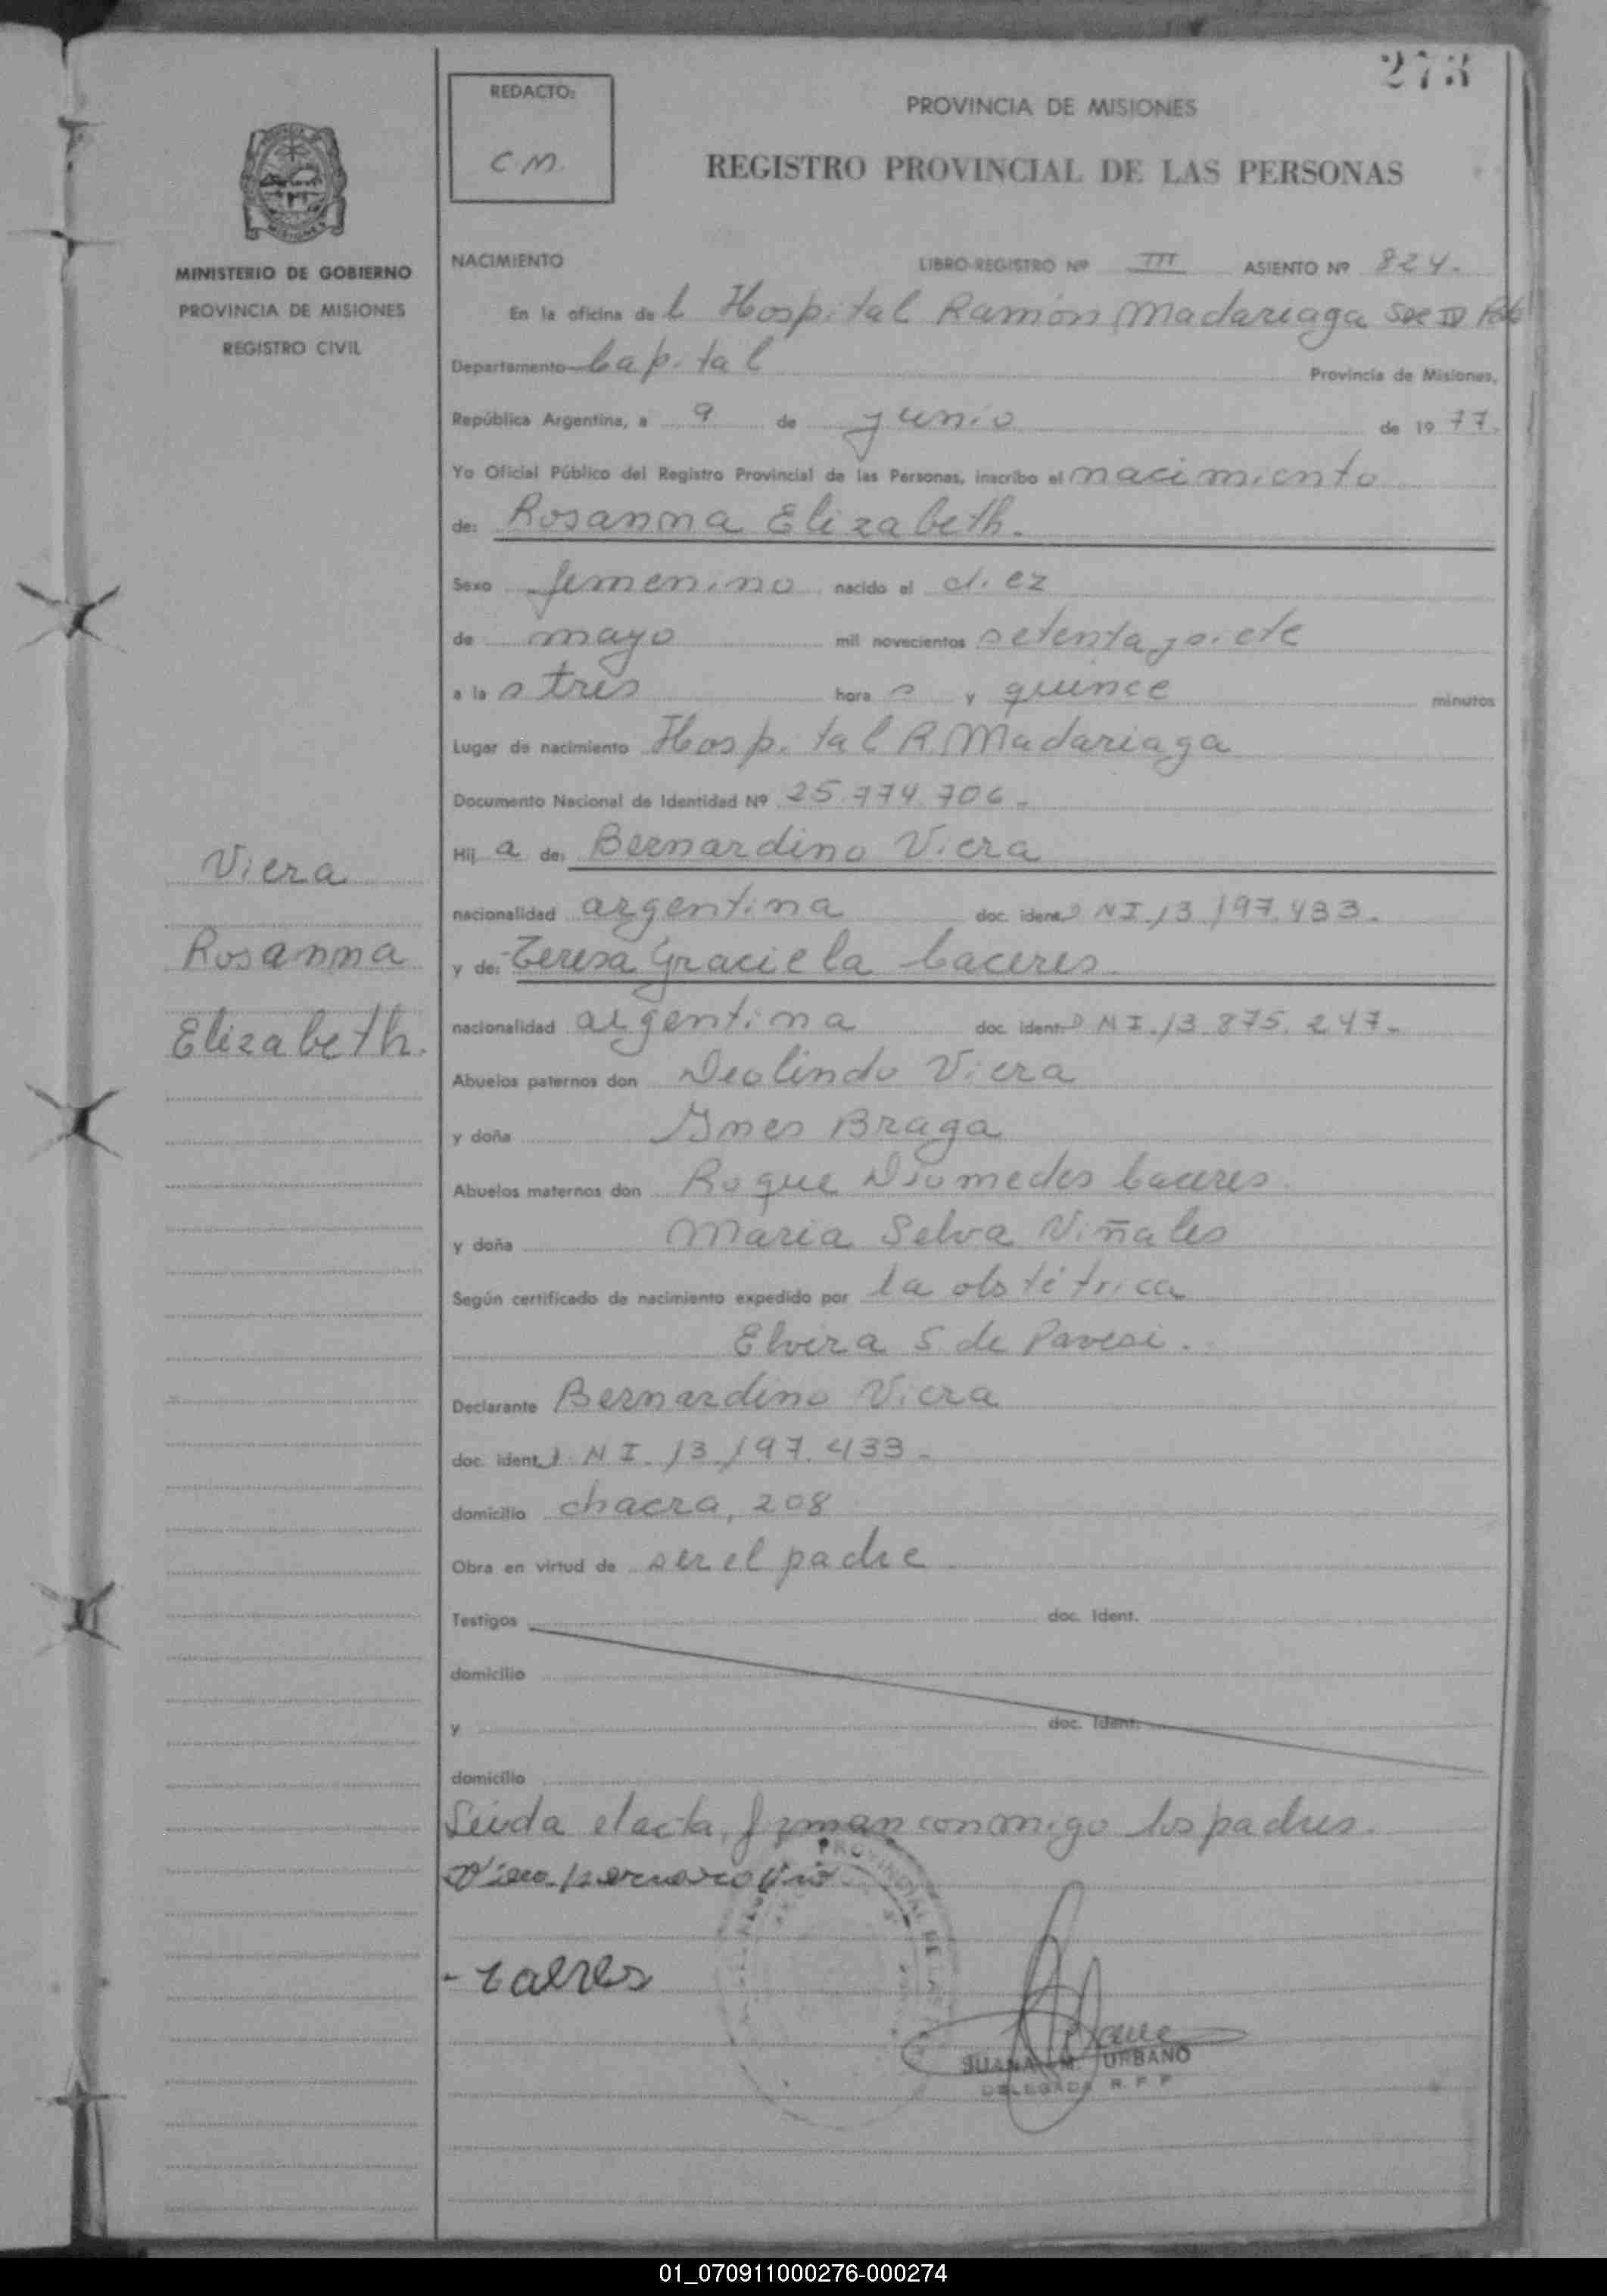 273
REDACTO:
C M.
PROVINCIA DE MISIONES
REGISTRO PROVINCIAL DE LAS PERSONAS
MISIONES
MINISTERIO DE GOBIERNO
PROVINCIA DE MISIONES
REGISTRO CIVIL
NACIMIENTO LIBRO-REGISTRO Nº III ASIENTO Nº 824.
En la oficina de l Hospital Ramón Madariaga Sec IV
Departamento Capital Provincia de Misiones,
República Argentina, a 9 de junio de 19 77.
Yo Oficial Público del Registro Provincial de las Personas, inscribo el nacimiento
de: Rosanna Elizabeth.
Sexo femenino nacido el diez
de mayo mil novecientos setenta y siete
a la s tres hora s y quince minutos
Lugar de nacimiento Hospital R. Madariaga
Documento Nacional de Identidad Nº 25.774.706.
Hij a de: Bernardino Viera
nacionalidad argentina doc. ident. D N I. 13 197.433.
y de: Teresa Graciela Caceres
nacionalidad argentina doc. ident. D N I. 13.875.247.
Abuelos paternos don Deolindo Viera
y doña Ynes Braga
Abuelos maternos don Roque Diomedes Caceres
y doña Maria Selva Viñales
Según certificado de nacimiento expedido por la obstétrica
Elvira S de Pavesi.
Declarante Bernardino Viera
doc. ident. D N I. 13.197.433.
domicilio chacra, 208
Obra en virtud de ser el padre
Testigos doc. Ident.
domicilio
y doc. Ident.
domicilio
Leida el acta, firman conmigo los padres.
Viera Bernardino
PROVINCIAL DE LAS
- Caceres
JUANA M. URBANO
DELEGADA R. P. P.
Viera
Rosanna
Elizabeth.
01_070911000276-000274